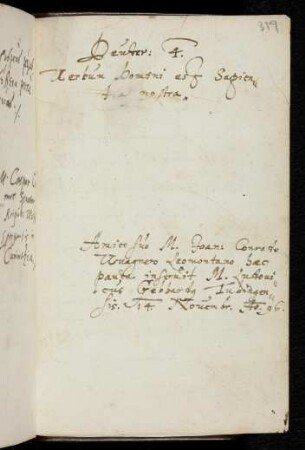 319
Deuter: 4.
Verbum Domini est Sapien-
tia nostra.
Amico suo M. Joani Conrado
Wuagnero Leomontano haec
pauca inseruit M. Ludoui-
cus Gebhardg Tubingen-
sis. 14. Nouembr. Ao. 96.
M. Caspar